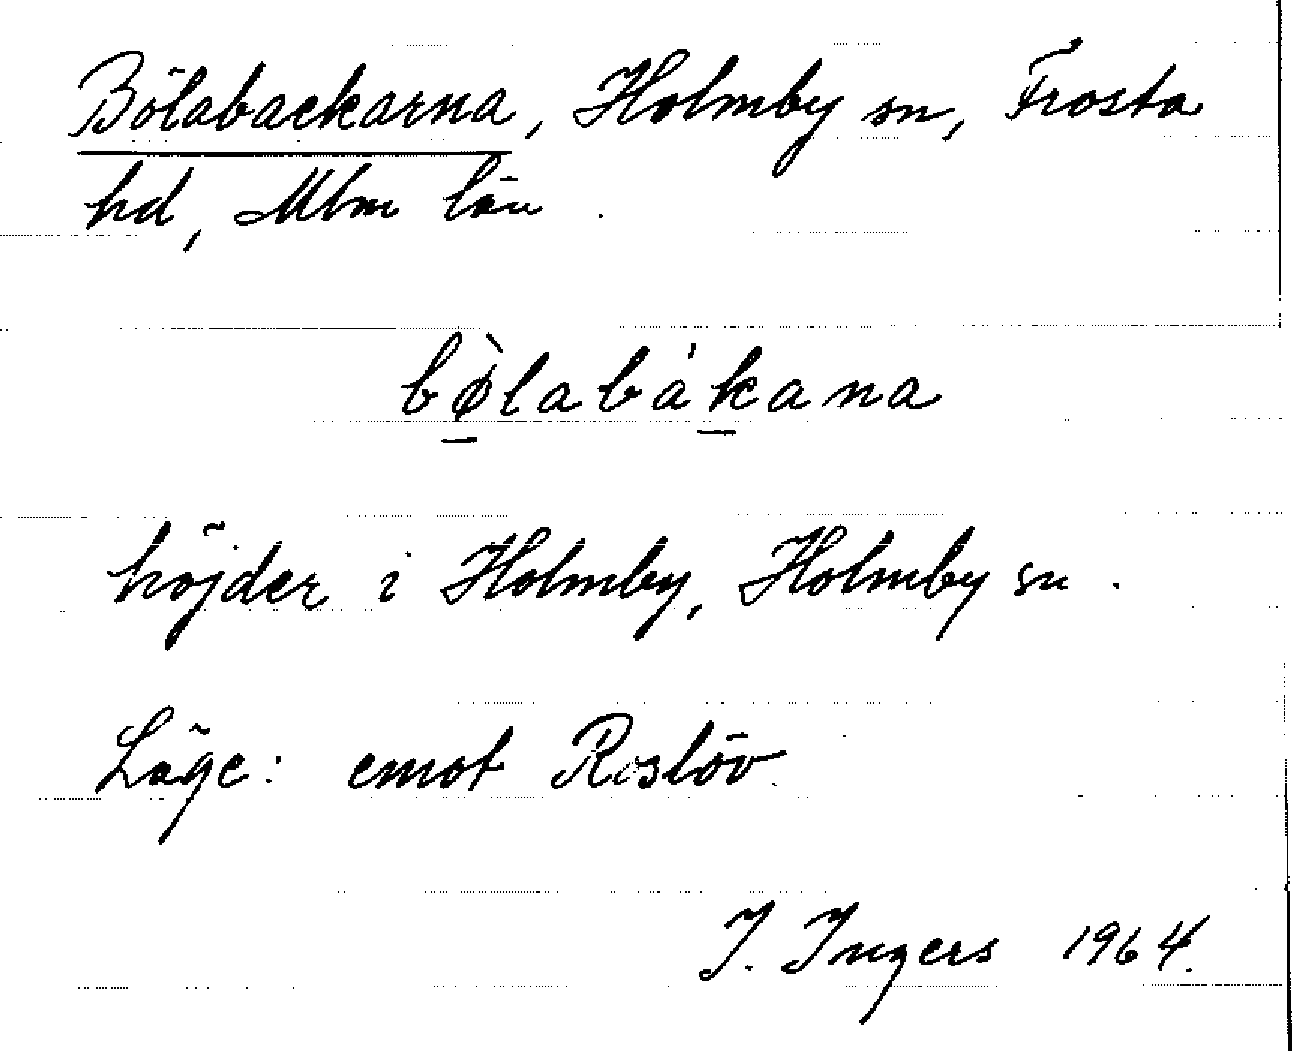 Bölabackarna, Holmby sn, Frosta
hd, Mlm län.
bø̀labákana
höjder i Holmby, Holmby sn.
Läge: emot Roslöv.
I. Ingers 1964.